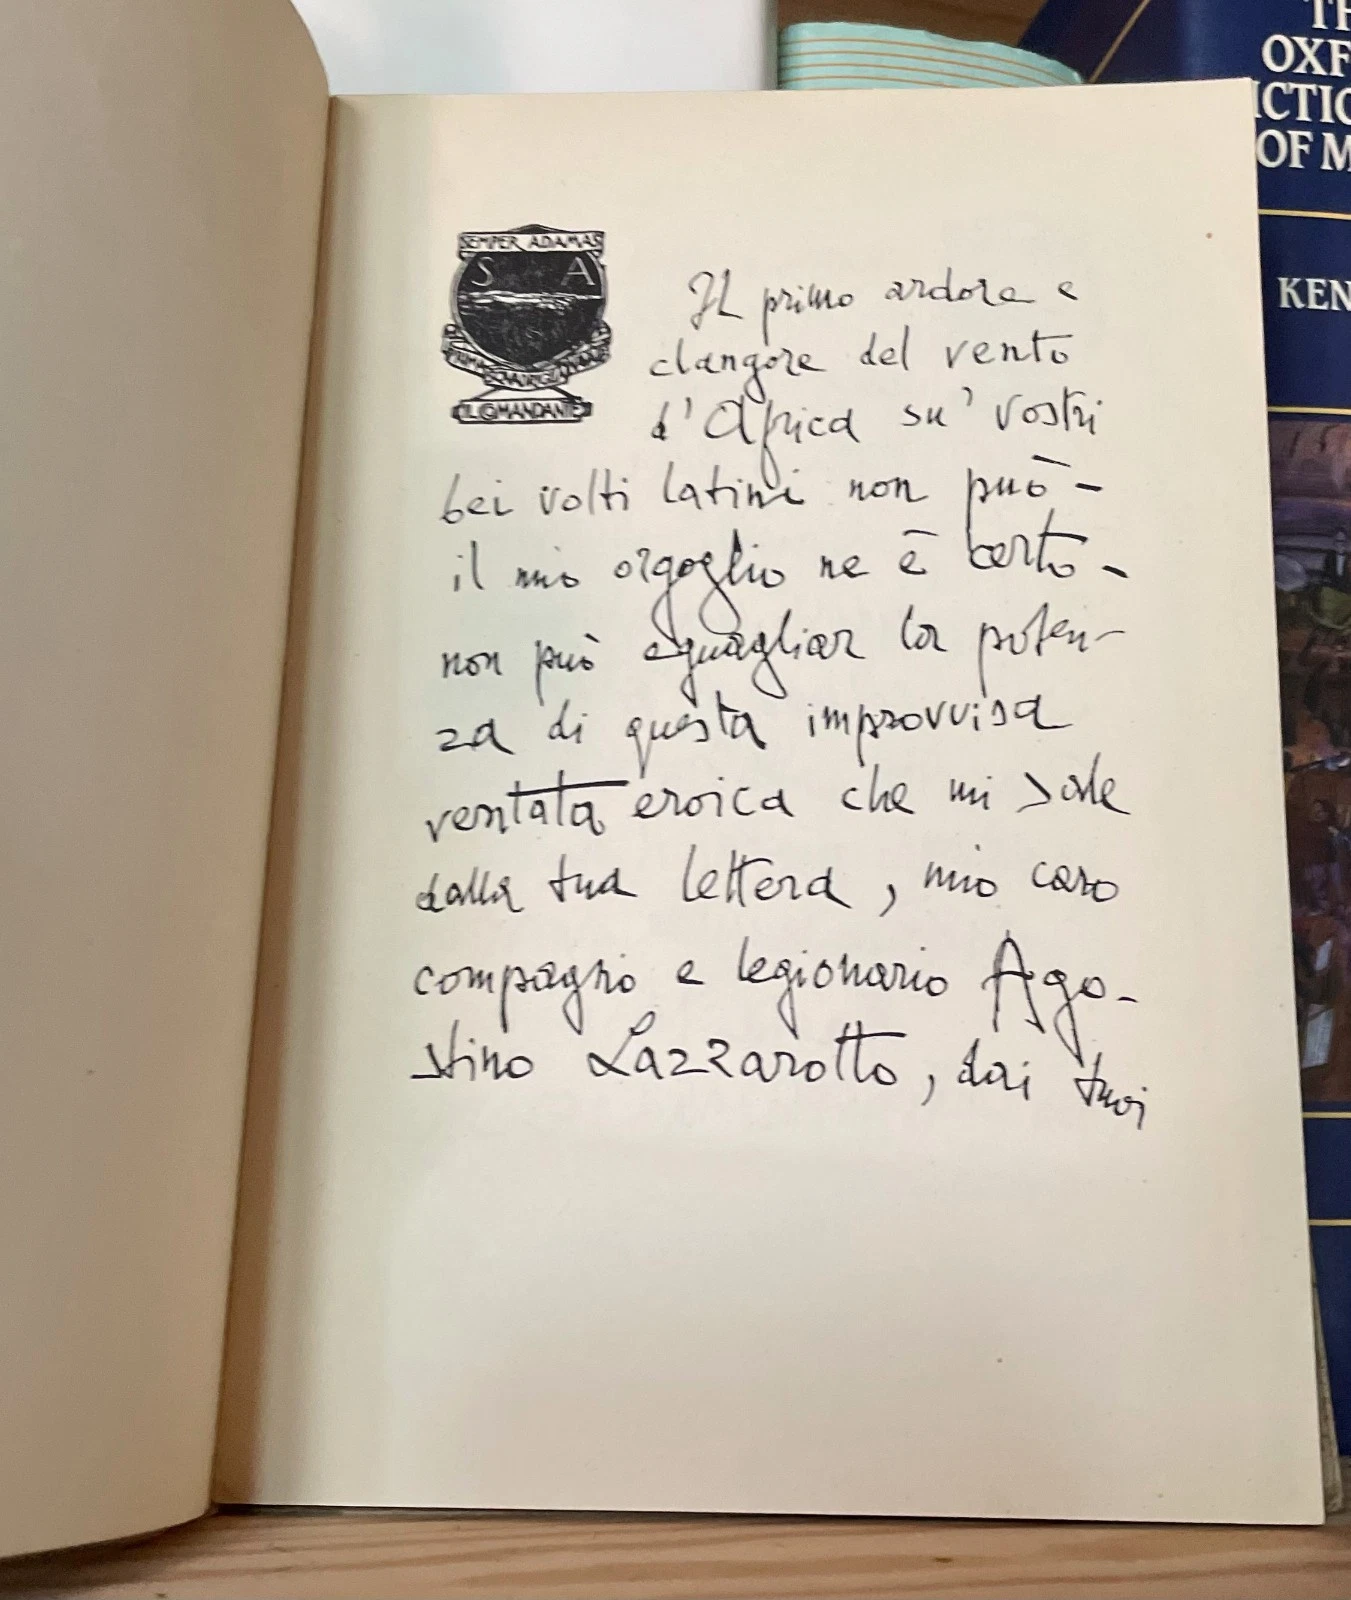 SEMPER ADAMAS
S A
PRIMA SQUADRIGLIA NAVALE
IL COMANDANTE
Il primo ardore e
clangore del vento
d'Africa su' vostri
bei volti latini non può -
il mio orgoglio ne è certo -
non può eguagliar la poten-
za di questa improvvisa
ventata eroica che mi sale
dalla tua lettera, mio caro
compagno e legionario Ago-
stino Lazzarotto, dai tuoi
TH
OXF
ICTIO
OF M
KEN